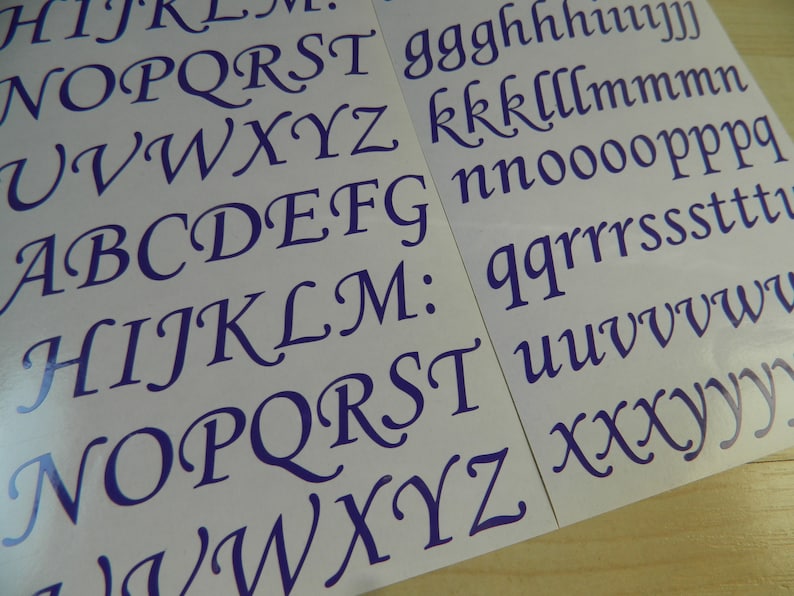 HIJKLM:
NOPQRST
UVWXYZ
ABCDEFG
HIJKLM:
NOPQRST
UVWXYZ
ggghhhiiuijjj
kkklllmmmn
nnoooopppq
qqrrrssstttu
uuvvvwv
xxxyyyy